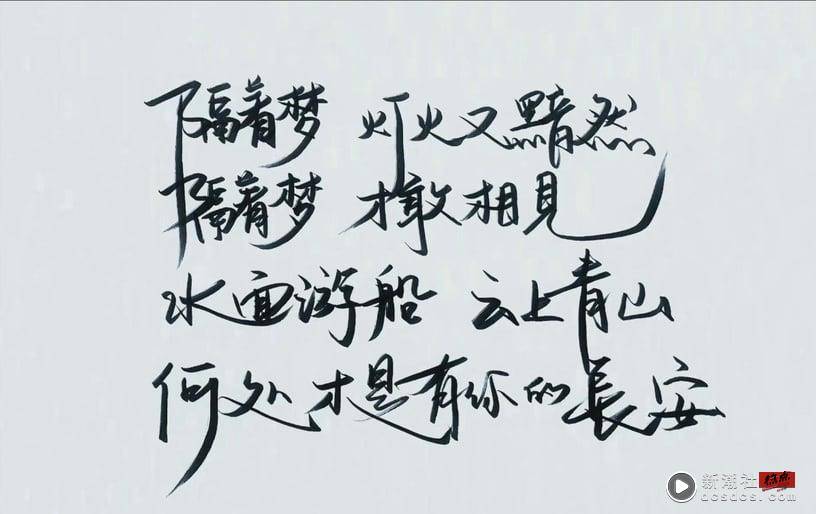 隔着梦 灯火又黯然
隔着梦 才敢相見
水面游船 云上青山
何处才是有你的長安
新潮社
dcsdcs.com